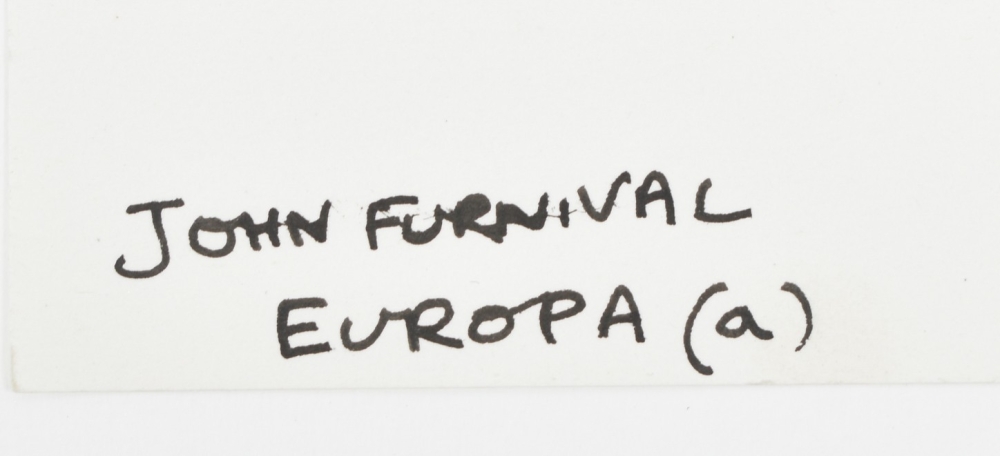 JOHN FURNIVAL
EUROPA (a)